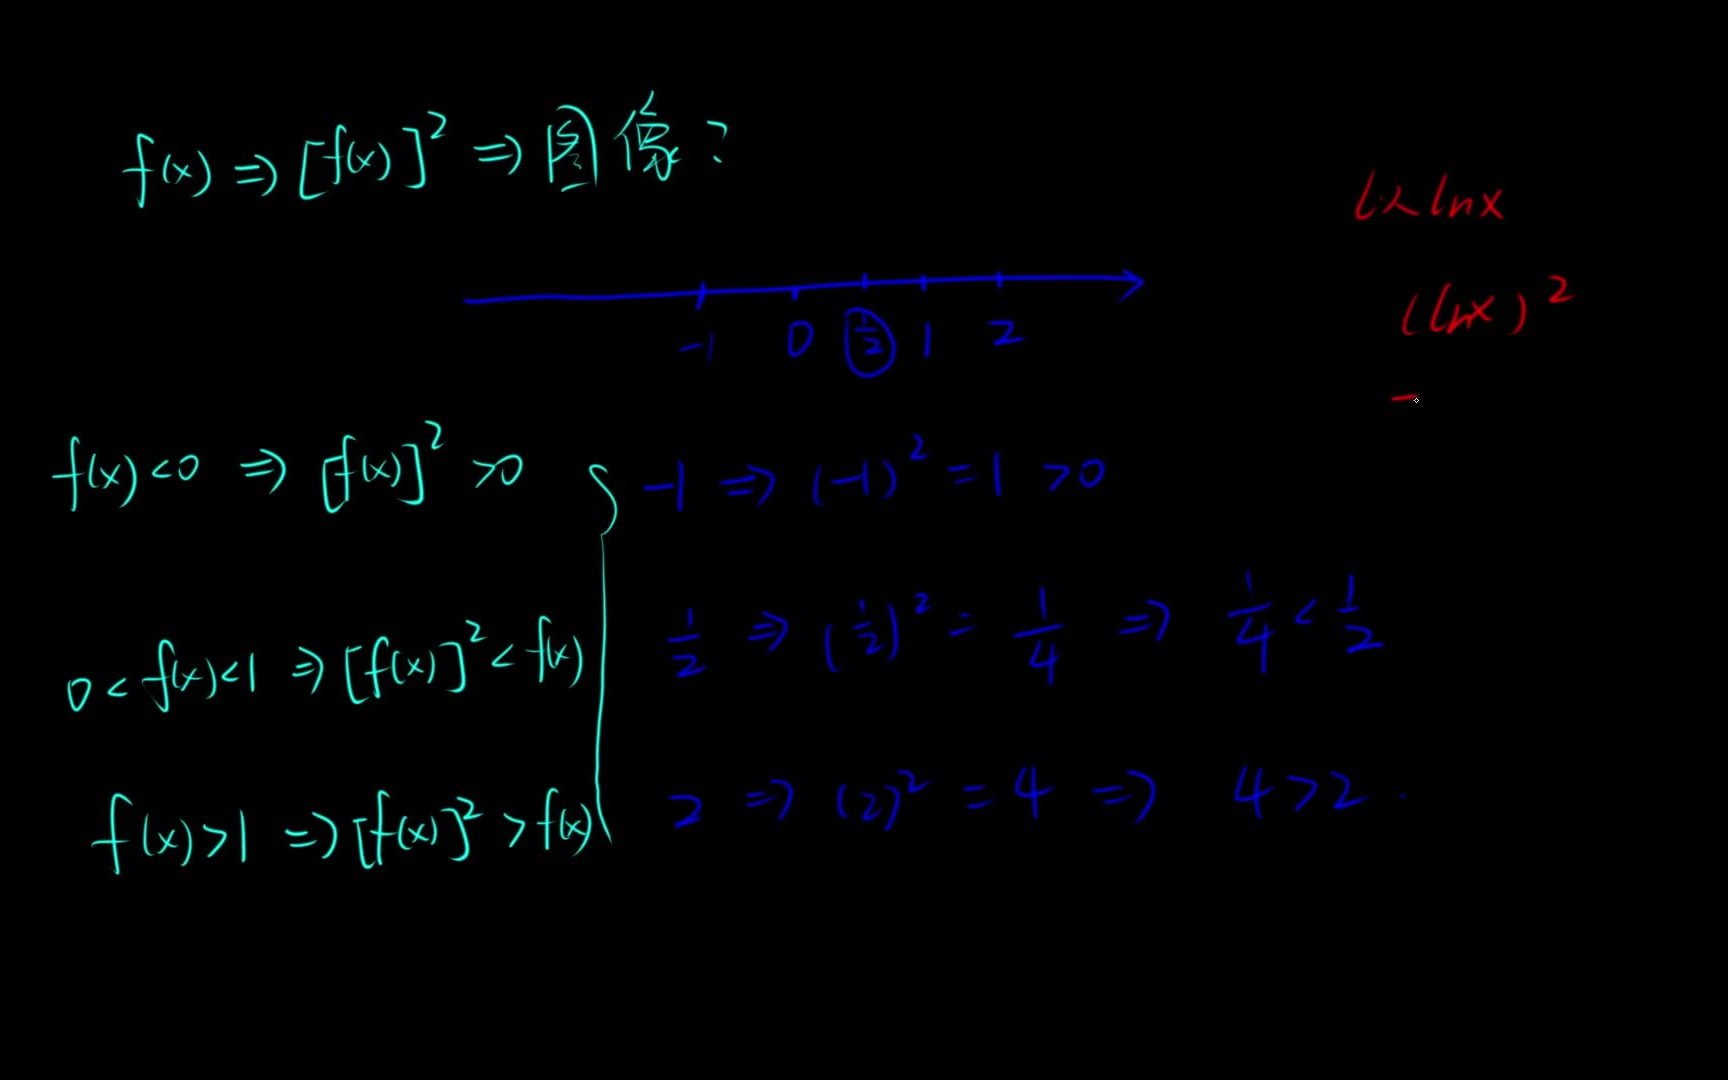 f(x) ⇒ [f(x)]² ⇒ 图像?
以 lnx
(lnx)²
-1 0 1/2 1 2
f(x)<0 ⇒ [f(x)]² >0
-1 ⇒ (-1)² = 1 >0
0 < f(x)<1 ⇒ [f(x)]² < f(x)
1/2 ⇒ (1/2)² = 1/4 ⇒ 1/4 < 1/2
f(x)>1 ⇒ [f(x)]² > f(x)
2 ⇒ (2)² = 4 ⇒ 4>2.